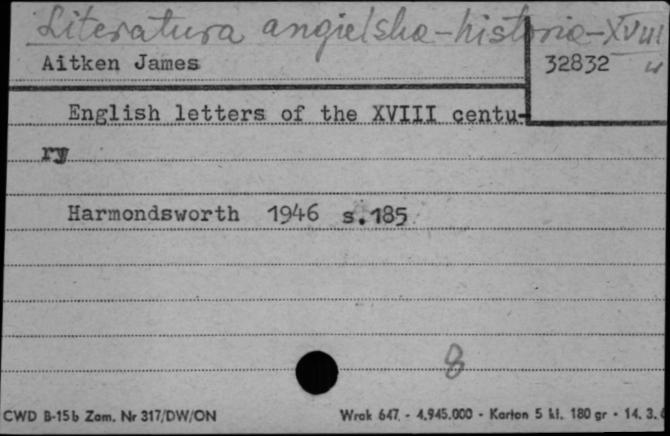 Literatura angielska-historia-XVIII
Aitken James
32832
English letters of the XVIII centu-
ry
Harmondsworth 1946 s.185
8
CWD B-15b Zam. Nr 317/DW/ON
Wrak 647. - 4.945.000 - Karton 5 kl. 180 gr - 14. 3.